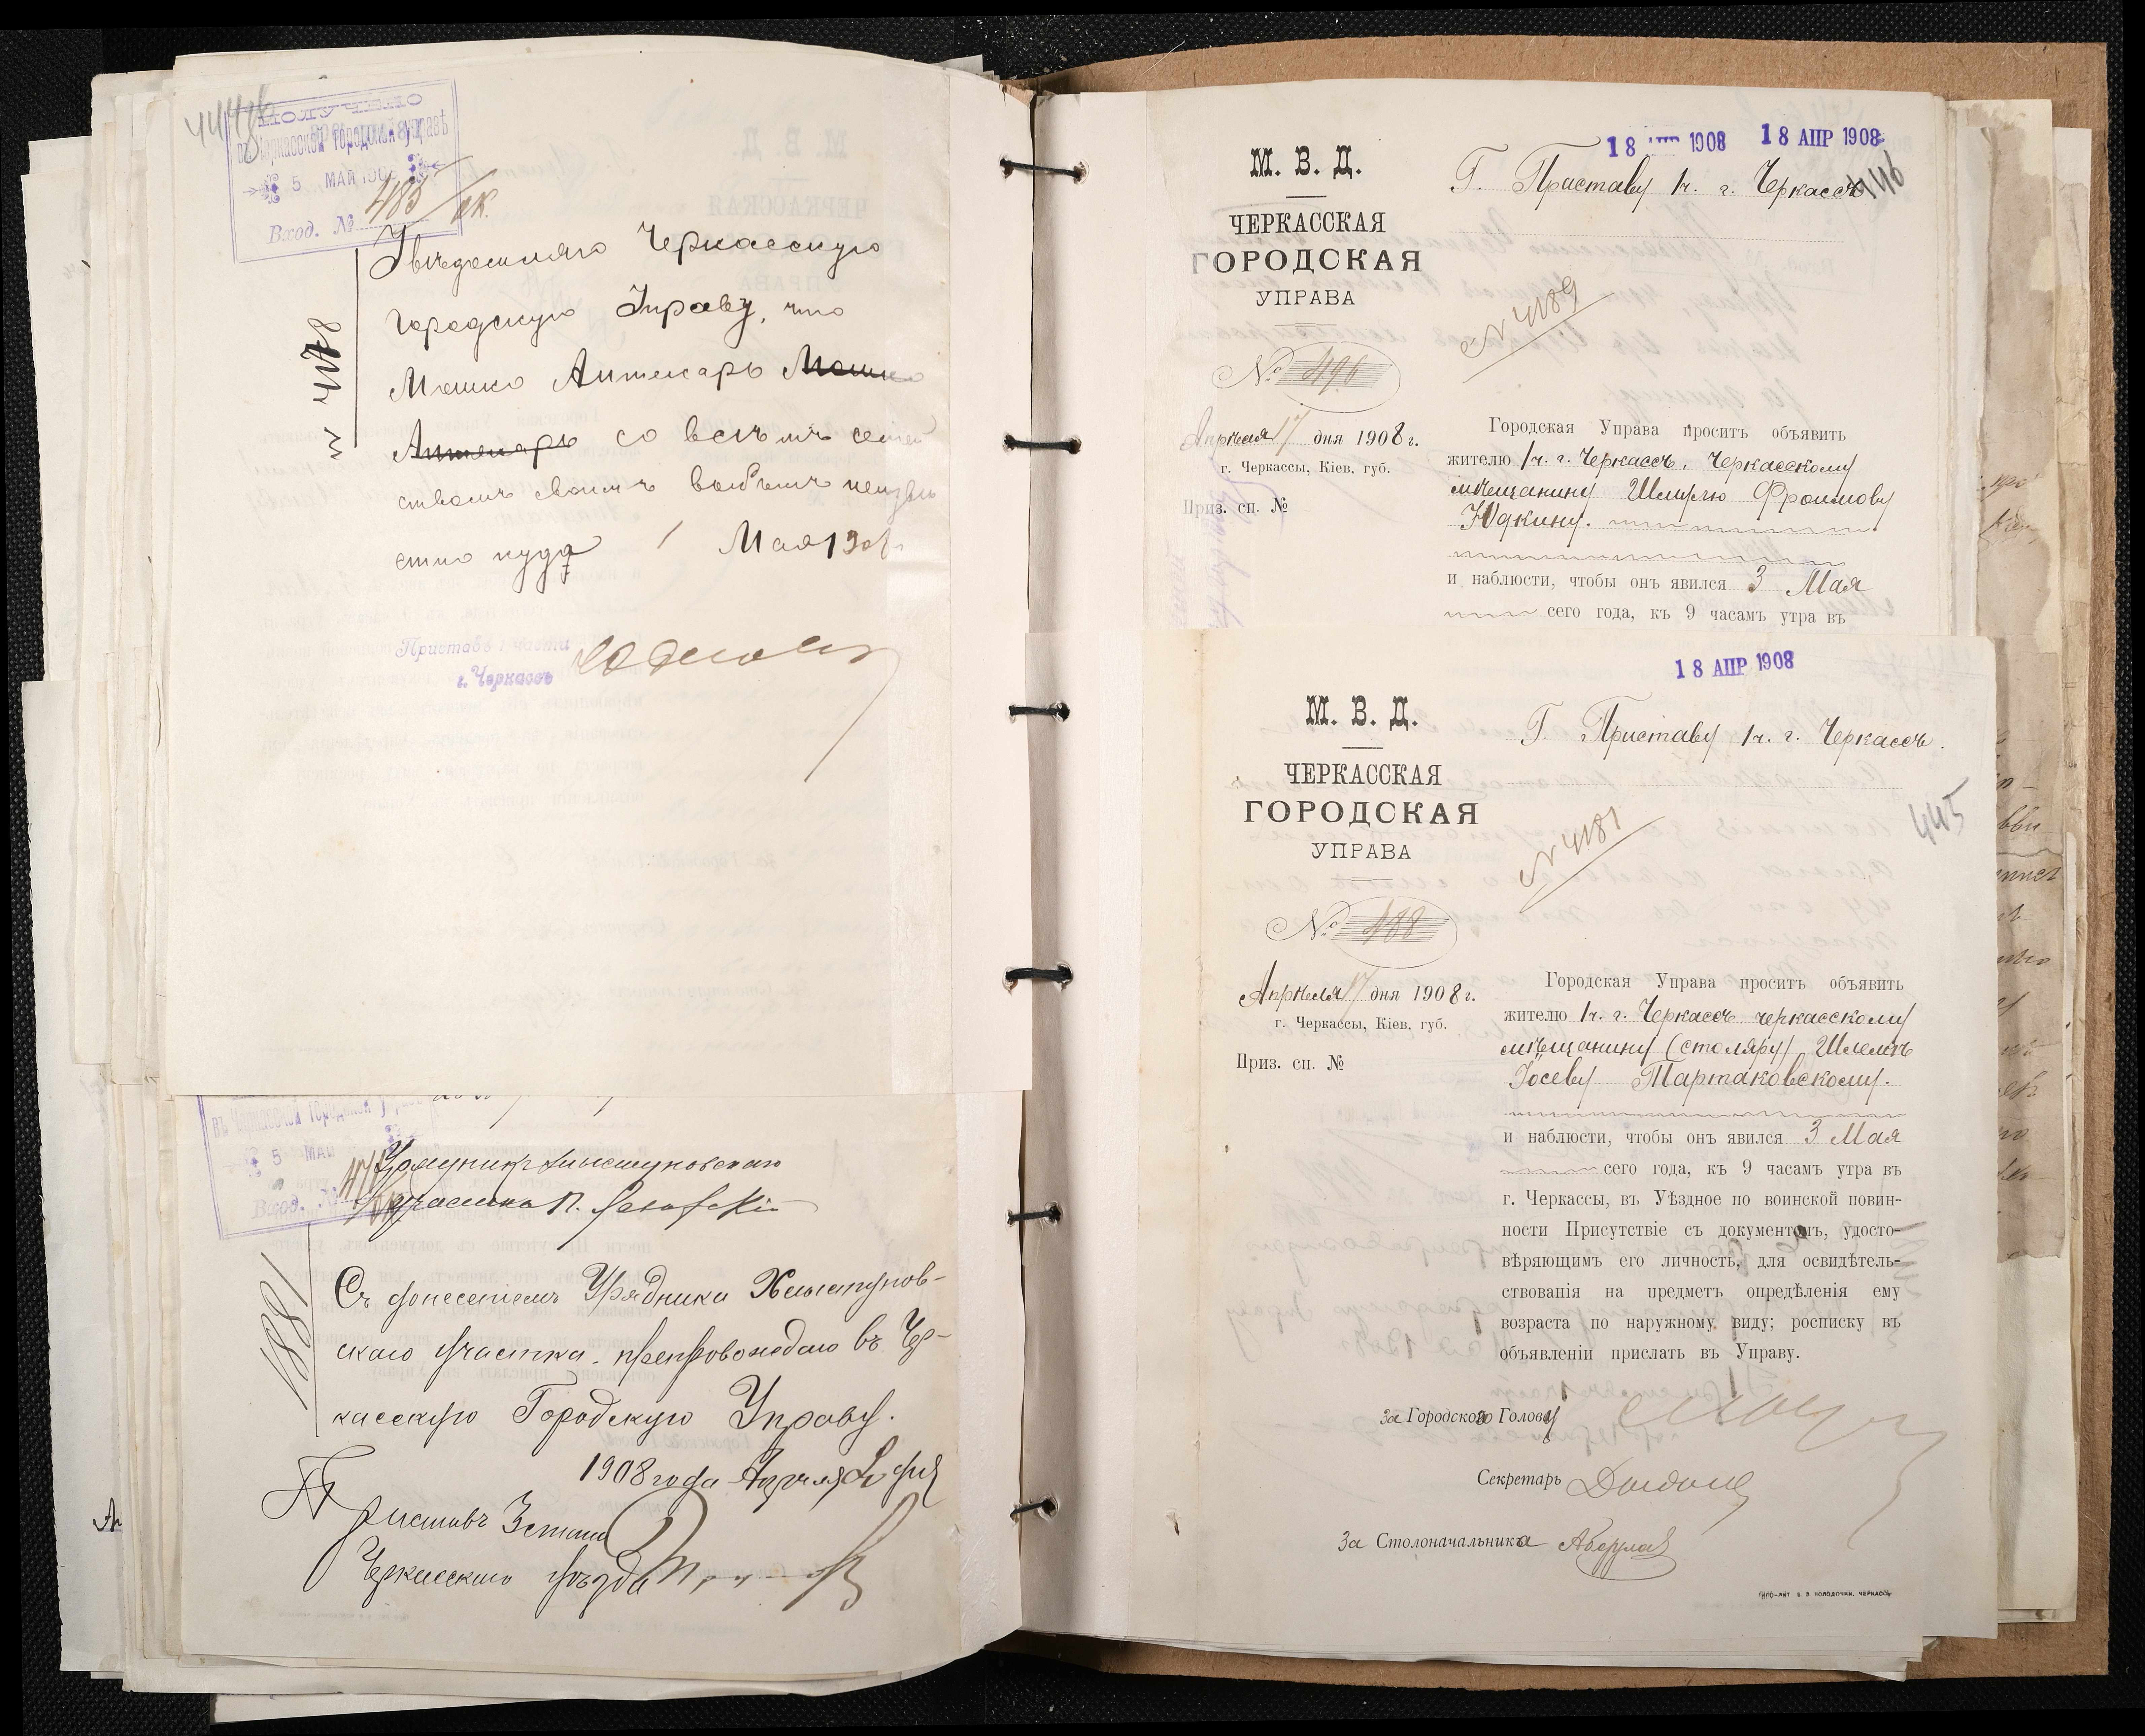 въ Черкасской городской управѣ
5 МАЙ 190
Вход. № 485/вк.
№ 4178
Увѣдомляю Черкасскую
Городскую Управу, что
Мошко Аптекарь Мошко
Аптекарь со всѣмъ семей
ствомъ своимъ выбылъ неизвѣ
стно куда 1 Мая 1908 г.
Приставъ 1 части
г. Черкассъ
въ Черкасской городской управѣ
5 МАЙ
Вход. №
Урядникъ Хлыстуновскаго
участка П.
1881
Съ донесеніемъ Урядника Хлыстунов-
скаго участка. препровождаю въ Чер-
касскую Городскую Управу.
1908 года Апрѣля дня
Приставъ 3 стана
Черкасскаго уѣзда
18 АПР 1908 18 АПР 1908
М. В. Д.
Г. Приставу 1 ч. г. Черкассъ
446
ЧЕРКАССКАЯ
ГОРОДСКАЯ
УПРАВА
№ 4189
№ 496
Апрѣля 17 дня 1908 г.
г. Черкассы, Кіев. губ.
Приз. сп. №
Городская Управа проситъ объявить
жителю 1 ч. г. Черкассъ, Черкасскому
мѣщанину Шмулю Фроимову
Юдкину.
и наблюсти, чтобы онъ явился 3 Мая
сего года, къ 9 часамъ утра въ
18 АПР 1908
М. В. Д.
Г. Приставу 1 ч. г. Черкассъ.
445
ЧЕРКАССКАЯ
ГОРОДСКАЯ
УПРАВА
№ 4181
№ 488
Апрѣля 17 дня 1908 г.
г. Черкассы, Кіев. губ.
Приз. сп. №
Городская Управа проситъ объявить
жителю 1 ч. г. Черкассъ черкасскому
мѣщанину (столяру) Шлемѣ
Іосеву Тартаковскому.
и наблюсти, чтобы онъ явился 3 Мая
сего года, къ 9 часамъ утра въ
г. Черкассы, въ Уѣздное по воинской повин-
ности Присутствіе съ документомъ, удосто-
вѣряющимъ его личность, для освидѣтель-
ствованія на предметъ опредѣленія ему
возраста по наружному виду; росписку въ
объявленіи прислать въ Управу.
За Городского Голову
Секретарь
За Столоначальника